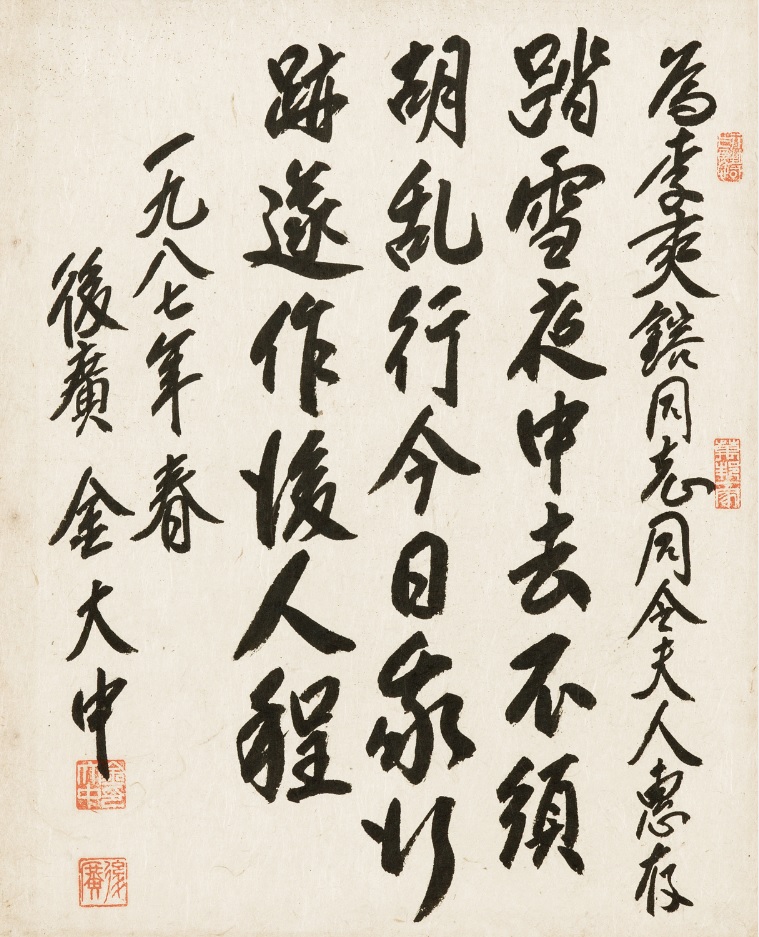 為李奭鎔同志同令夫人惠存
踏雪夜中去不須
胡乱行今日我行
跡遂作後人程
一九八七年春
後廣 金大中
後廣